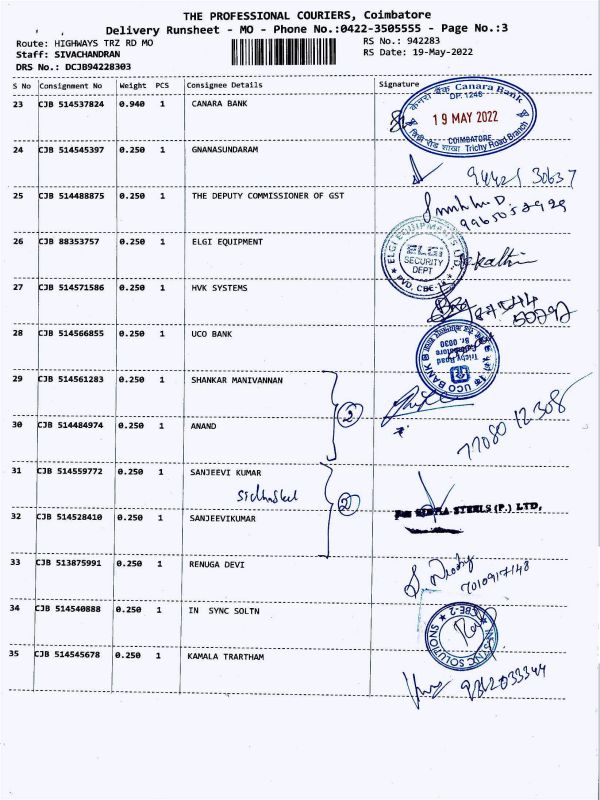 THE PROFESSIONAL COURIERS, Coimbatore
Delivery Runsheet - MO - Phone No.:0422-3505555 - Page No.:3
Route: HIGHWAYS TRZ RD MO RS No.: 942283
Staff: SIVACHANDRAN RS Date: 19-May-2022
DRS No.: DCJB94228303
S No Consignment No Weight PCS Consignee Details Signature
23 CJB 514537824 0.940 1 CANARA BANK
केनरा बैंक Canara Bank
DP. 1248
19 MAY 2022
COIMBATORE
Trichy Road Branch
24 CJB 514545397 0.250 1 GNANASUNDARAM
94421 30637
25 CJB 514488875 0.250 1 THE DEPUTY COMMISSIONER OF GST
26 CJB 88353757 0.250 1 ELGI EQUIPMENT
ELGI EQUIPMENTS LTD
ELGI
SECURITY
DEPT
PVD, CBE-14
27 CJB 514571586 0.250 1 HVK SYSTEMS
28 CJB 514566855 0.250 1 UCO BANK
UCO BANK
Trichy Road
Coimbatore
29 CJB 514561283 0.250 1 SHANKAR MANIVANNAN
2
30 CJB 514484974 0.250 1 ANAND
77080 12308
31 CJB 514559772 0.250 1 SANJEEVI KUMAR
2
STEELS (P.) LTD,
32 CJB 514528410 0.250 1 SANJEEVIKUMAR
33 CJB 513875991 0.250 1 RENUGA DEVI
7010917148
34 CJB 514540888 0.250 1 IN SYNC SOLTN
IN SYNC SOLUTIONS
CBE-2
35 CJB 514545678 0.250 1 KAMALA TRARTHAM
9842033344